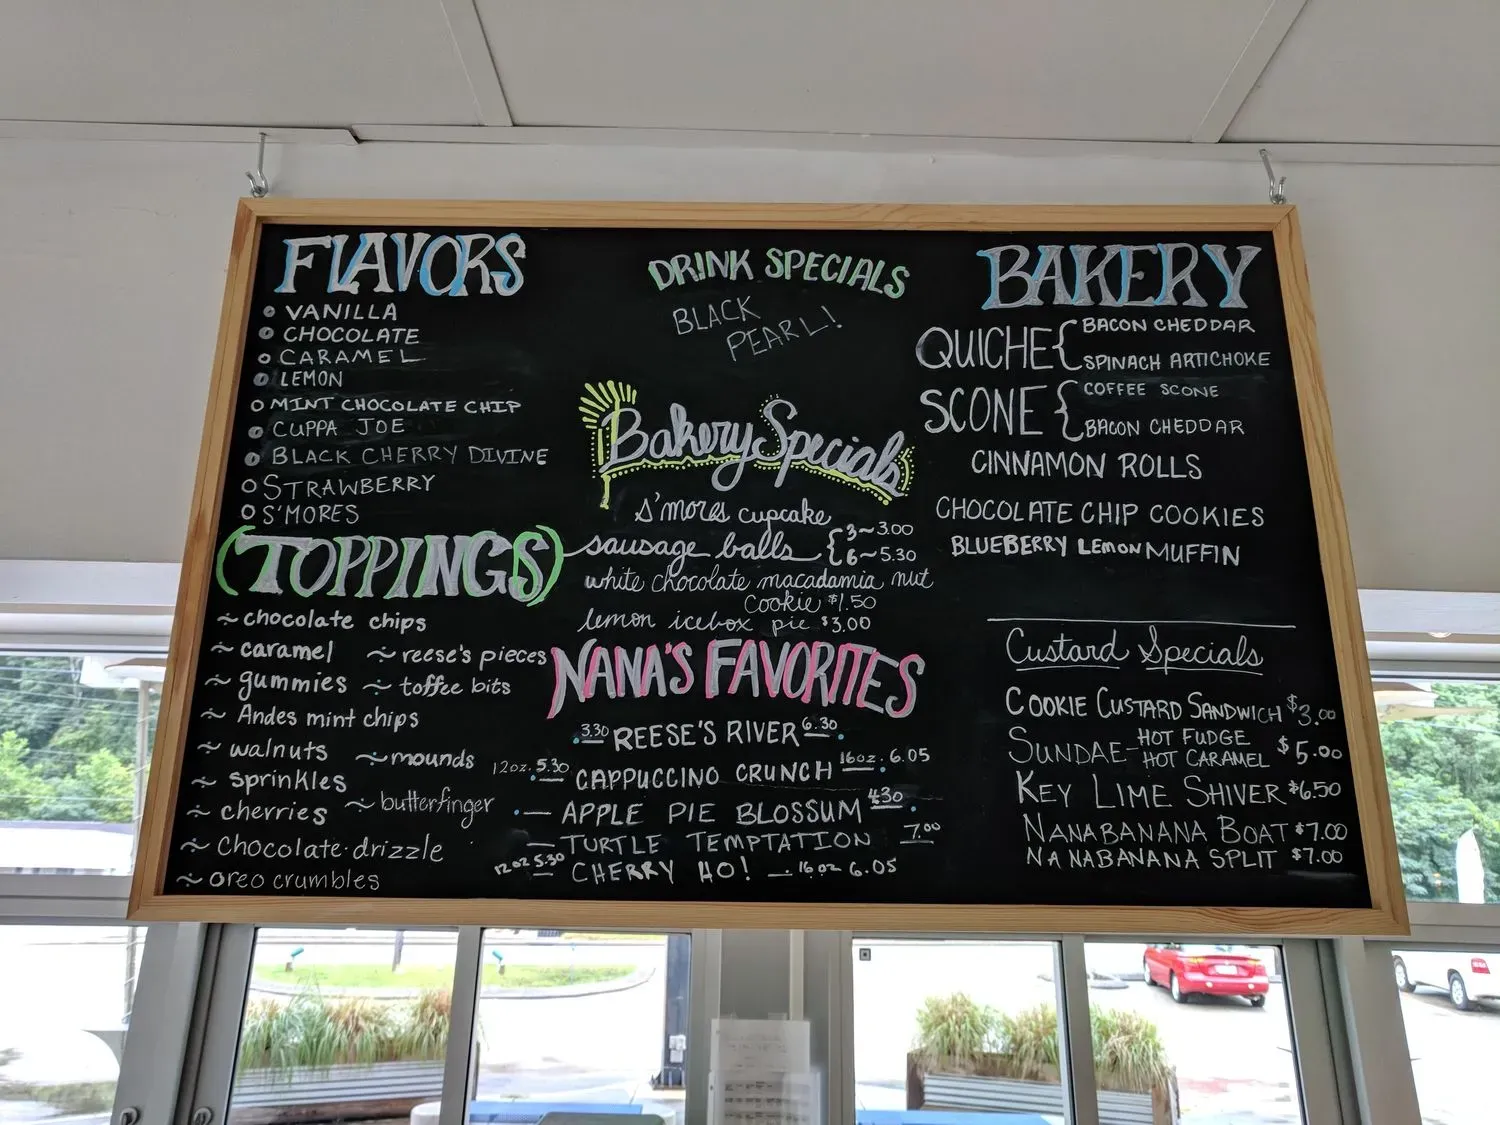 FLAVORS
VANILLA
CHOCOLATE
CARAMEL
LEMON
MINT CHOCOLATE CHIP
CUPPA JOE
BLACK CHERRY DIVINE
STRAWBERRY
S'MORES
(TOPPINGS)
~ chocolate chips
~ caramel ~ reese's pieces
~ gummies ~ toffee bits
~ Andes mint chips
~ walnuts ~ mounds
~ sprinkles
~ cherries ~ butterfinger
~ chocolate drizzle
~ oreo crumbles
DRINK SPECIALS
BLACK
PEARL!
Bakery Specials
s'mores cupcake
sausage balls { 3~3.00
6~5.30
white chocolate macadamia nut
cookie $1.50
lemon icebox pie $3.00
NANA'S FAVORITES
3.30 REESE'S RIVER 6.30
12oz. 5.30 CAPPUCCINO CRUNCH 16oz. 6.05
APPLE PIE BLOSSUM 4.30
TURTLE TEMPTATION 7.00
12oz 5.30 CHERRY HO! 16oz 6.05
BAKERY
QUICHE { BACON CHEDDAR
SPINACH ARTICHOKE
SCONE { COFFEE SCONE
BACON CHEDDAR
CINNAMON ROLLS
CHOCOLATE CHIP COOKIES
BLUEBERRY LEMON MUFFIN
Custard Specials
COOKIE CUSTARD SANDWICH $3.00
SUNDAE- HOT FUDGE
HOT CARAMEL $5.00
KEY LIME SHIVER $6.50
NANABANANA BOAT $7.00
NANABANANA SPLIT $7.00